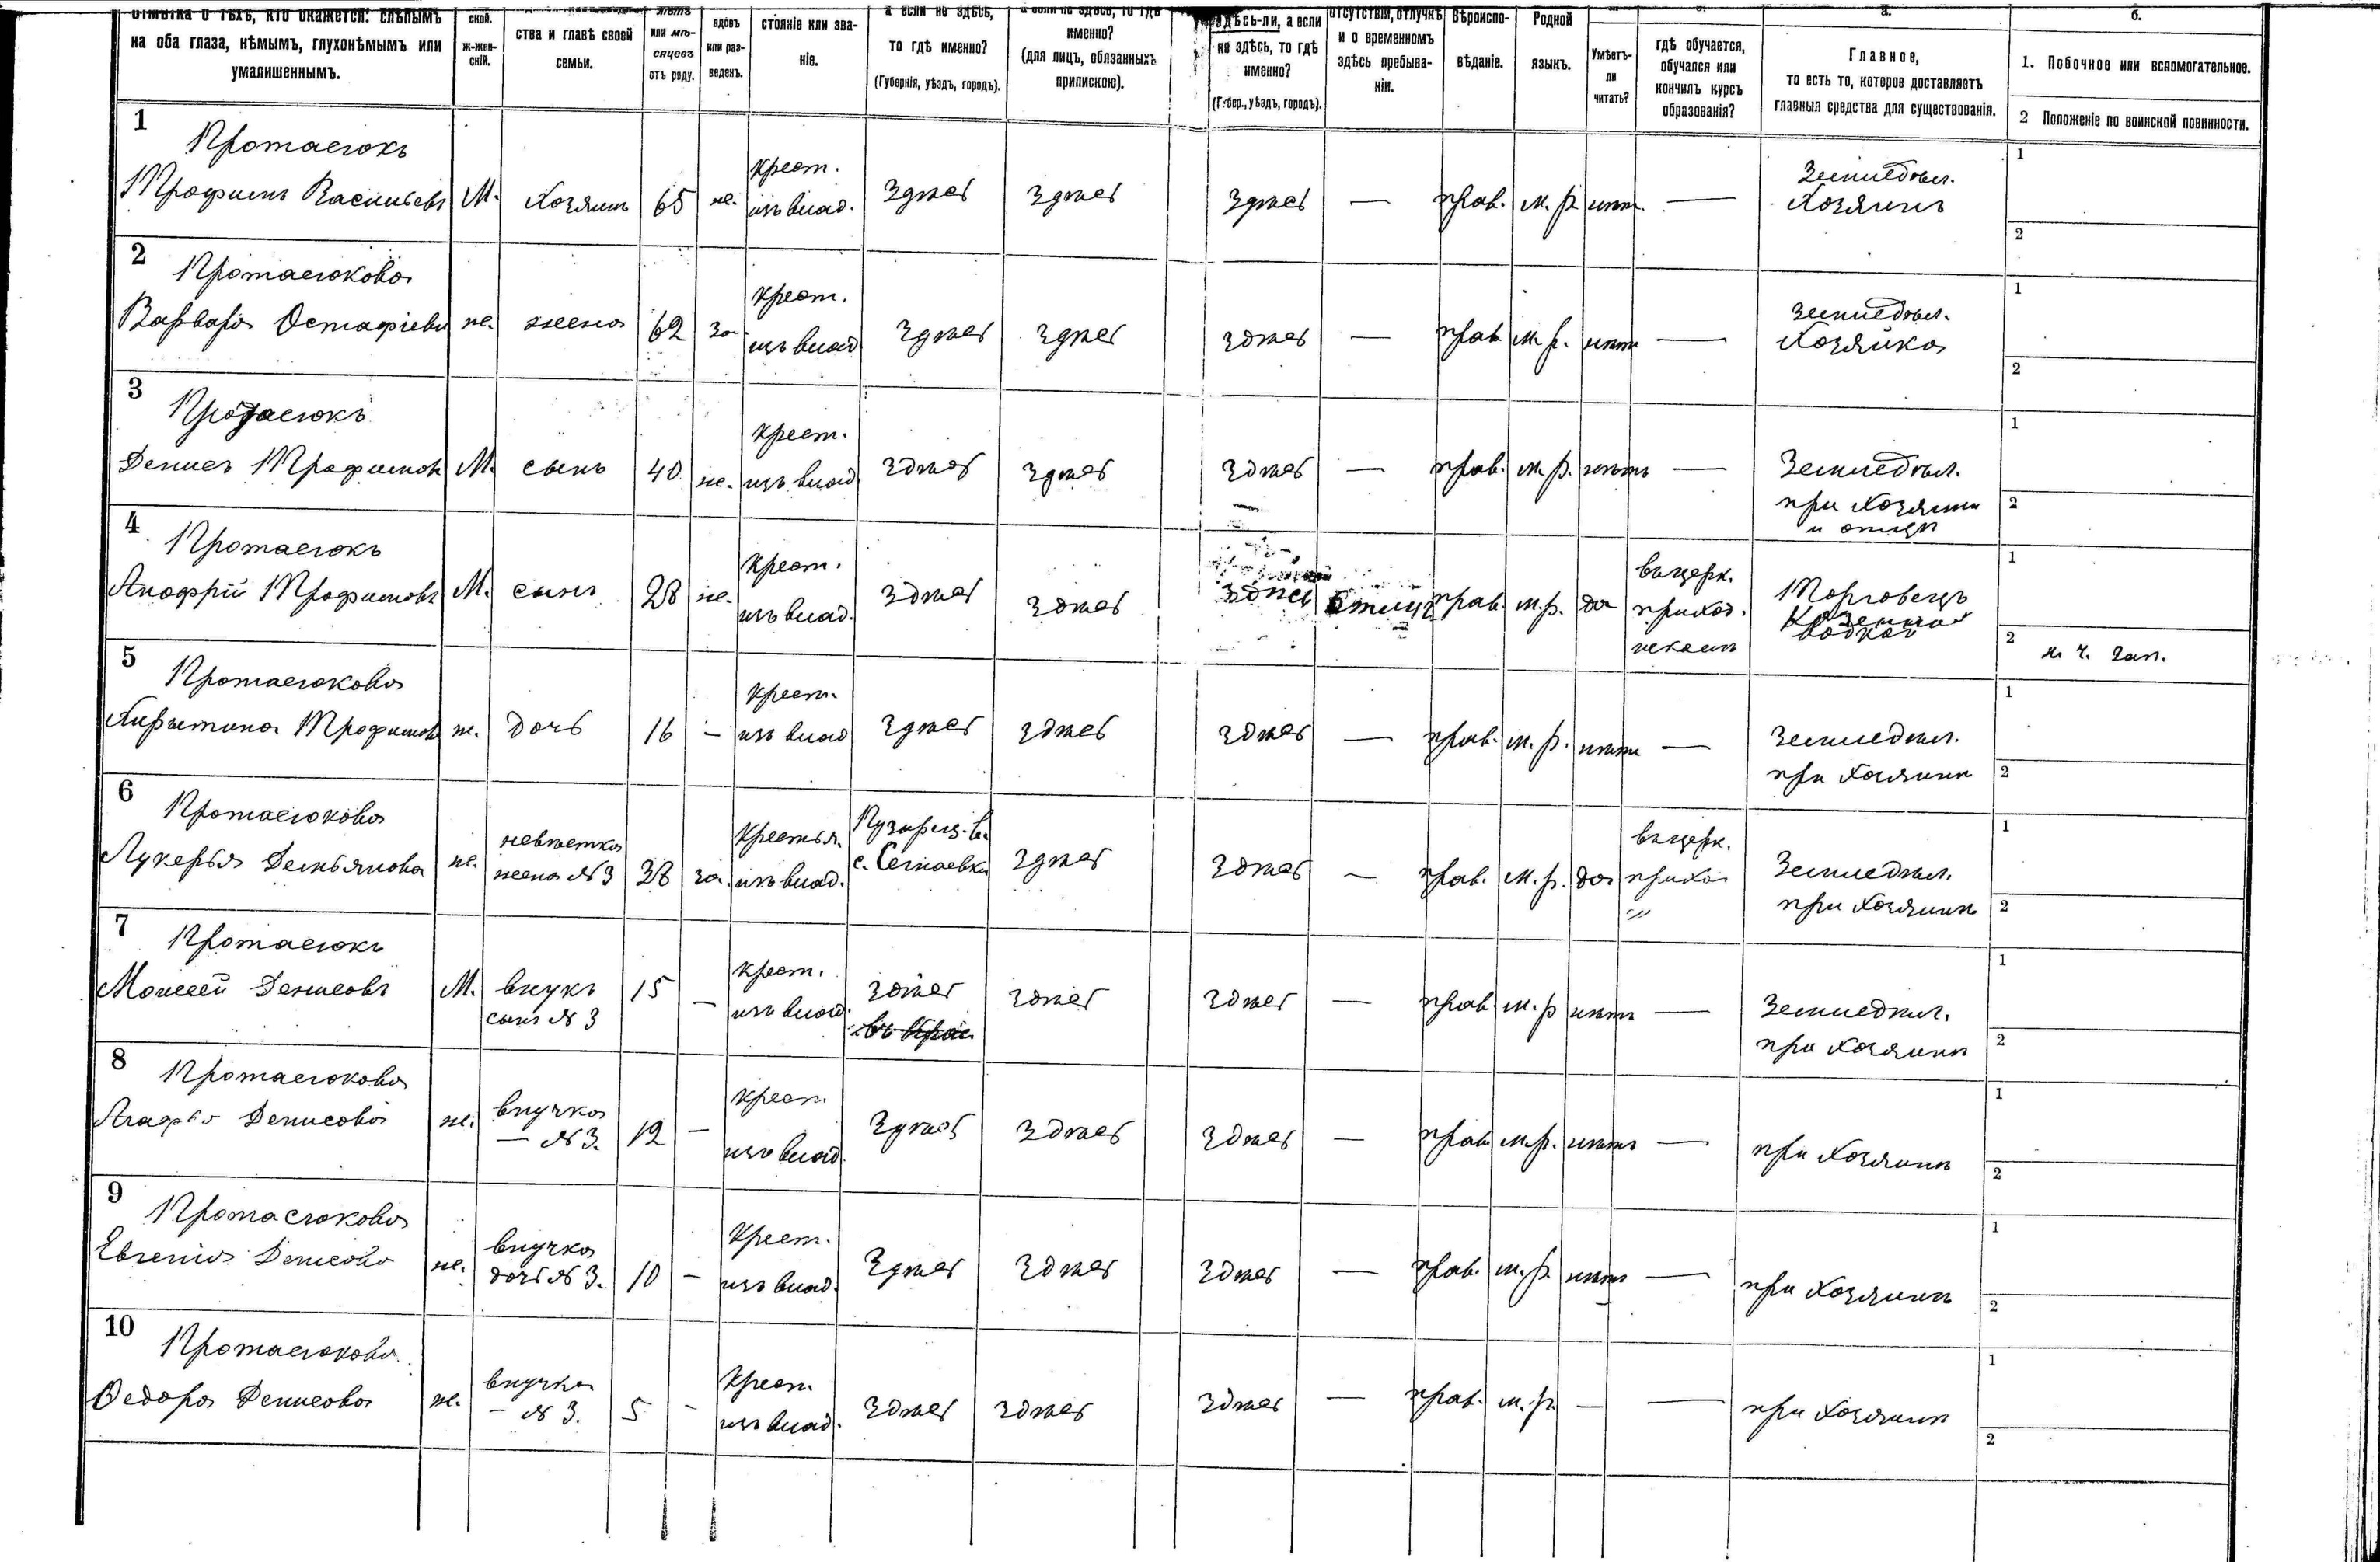 отмѣтка о тѣхъ, кто окажется: слѣпымъ
на оба глаза, нѣмымъ, глухонѣмымъ или
умалишеннымъ.
ской.
ж-жен-
скій.
ства и главѣ своей
семьи.
или мѣ-
сяцевъ
отъ роду.
вдовъ
или раз-
веденъ.
стояніе или зва-
ніе.
а если не здѣсь,
то гдѣ именно?
(Губернія, уѣздъ, городъ).
а если не здѣсь, то гдѣ
именно?
(для лицъ, обязанныхъ
припискою).
здѣсь-ли, а если
не здѣсь, то гдѣ
именно?
(Губер., уѣздъ, городъ).
отсутствіи, отлучкѣ
и о временномъ
здѣсь пребыва-
ніи.
Вѣроиспо-
вѣданіе.
Родной
языкъ.
Умѣетъ-
ли
читать?
гдѣ обучается,
обучался или
кончилъ курсъ
образованія?
а.
Главное,
то есть то, которое доставляетъ
главныя средства для существованія.
б.
1. Побочное или вспомогательное.
2 Положеніе по воинской повинности.
1
Протасюкъ
Трофимъ Васильевъ
М.
Хозяинъ
65
же.
крест.
изъ влад.
Здѣсь
Здѣсь
Здѣсь
—
прав.
м. р.
нѣт.
—
Земледѣл.
Хозяинъ
1
2
2
Протасюкова
Варвара Остафіева
же.
жена
62
за
крест.
изъ влад.
Здѣсь
здѣсь
здѣсь
—
прав.
м. р.
нѣтъ
—
земледѣл.
Хозяйка
1
2
3
Протасюкъ
Денисъ Трофимовъ
М.
сынъ
40
же.
крест.
изъ влад.
здѣсь
здѣсь
здѣсь
—
прав.
м. р.
нѣтъ
—
Земледѣл.
при Хозяинѣ
и отцѣ
1
2
4
Протасюкъ
Анофрій Трофимовъ
М.
сынъ
28
же.
крест.
изъ влад.
здѣсь
здѣсь
здѣсь
прав.
м. р.
да
въ церк.
приход.
школѣ
Торговецъ
водкой
1
2 н. ч. зап.
5
Протасюкова
Христина Трофимов
ж.
дочь
16
—
крест.
изъ влад
здѣсь
здѣсь
здѣсь
—
прав.
м. р.
нѣтъ
—
земледѣл.
при Хозяинѣ
1
2
6
Протасюкова
Лукерья Демьянова
же.
невѣстка
жена № 3
38
за.
Крестья.
изъ влад.
здѣсь
здѣсь
—
прав.
м. р.
да
въ церк.
прихо
〃
Земледѣл.
при Хозяинѣ
1
2
7
Протасюкъ
Моисей Денисовъ
М.
внукъ
сынъ № 3
15
—
крест.
изъ влад.
здѣсь
здѣсь
здѣсь
—
прав.
м. р
нѣтъ
—
Земледѣл.
при Хозяинѣ
1
2
8
Протасюкова
Агафья Денисова
же.
внучка
— № 3.
12
—
крест.
изъ влад.
здѣсь
здѣсь
здѣсь
—
прав.
м. р.
нѣтъ
—
при Хозяинѣ
1
2
9
Протасюкова
Евгенія Денисова
же.
внучка
дочь № 3.
10
—
Крест.
изъ влад.
здѣсь
здѣсь
здѣсь
—
прав.
м. р.
нѣтъ
—
при Хозяинѣ
1
2
10
Протасюкова
Ѳедора Денисова
же.
внучка
— № 3.
5
-
Крест.
изъ влад.
здѣсь
здѣсь
здѣсь
—
прав.
м. р.
—
—
при Хозяинѣ
1
2